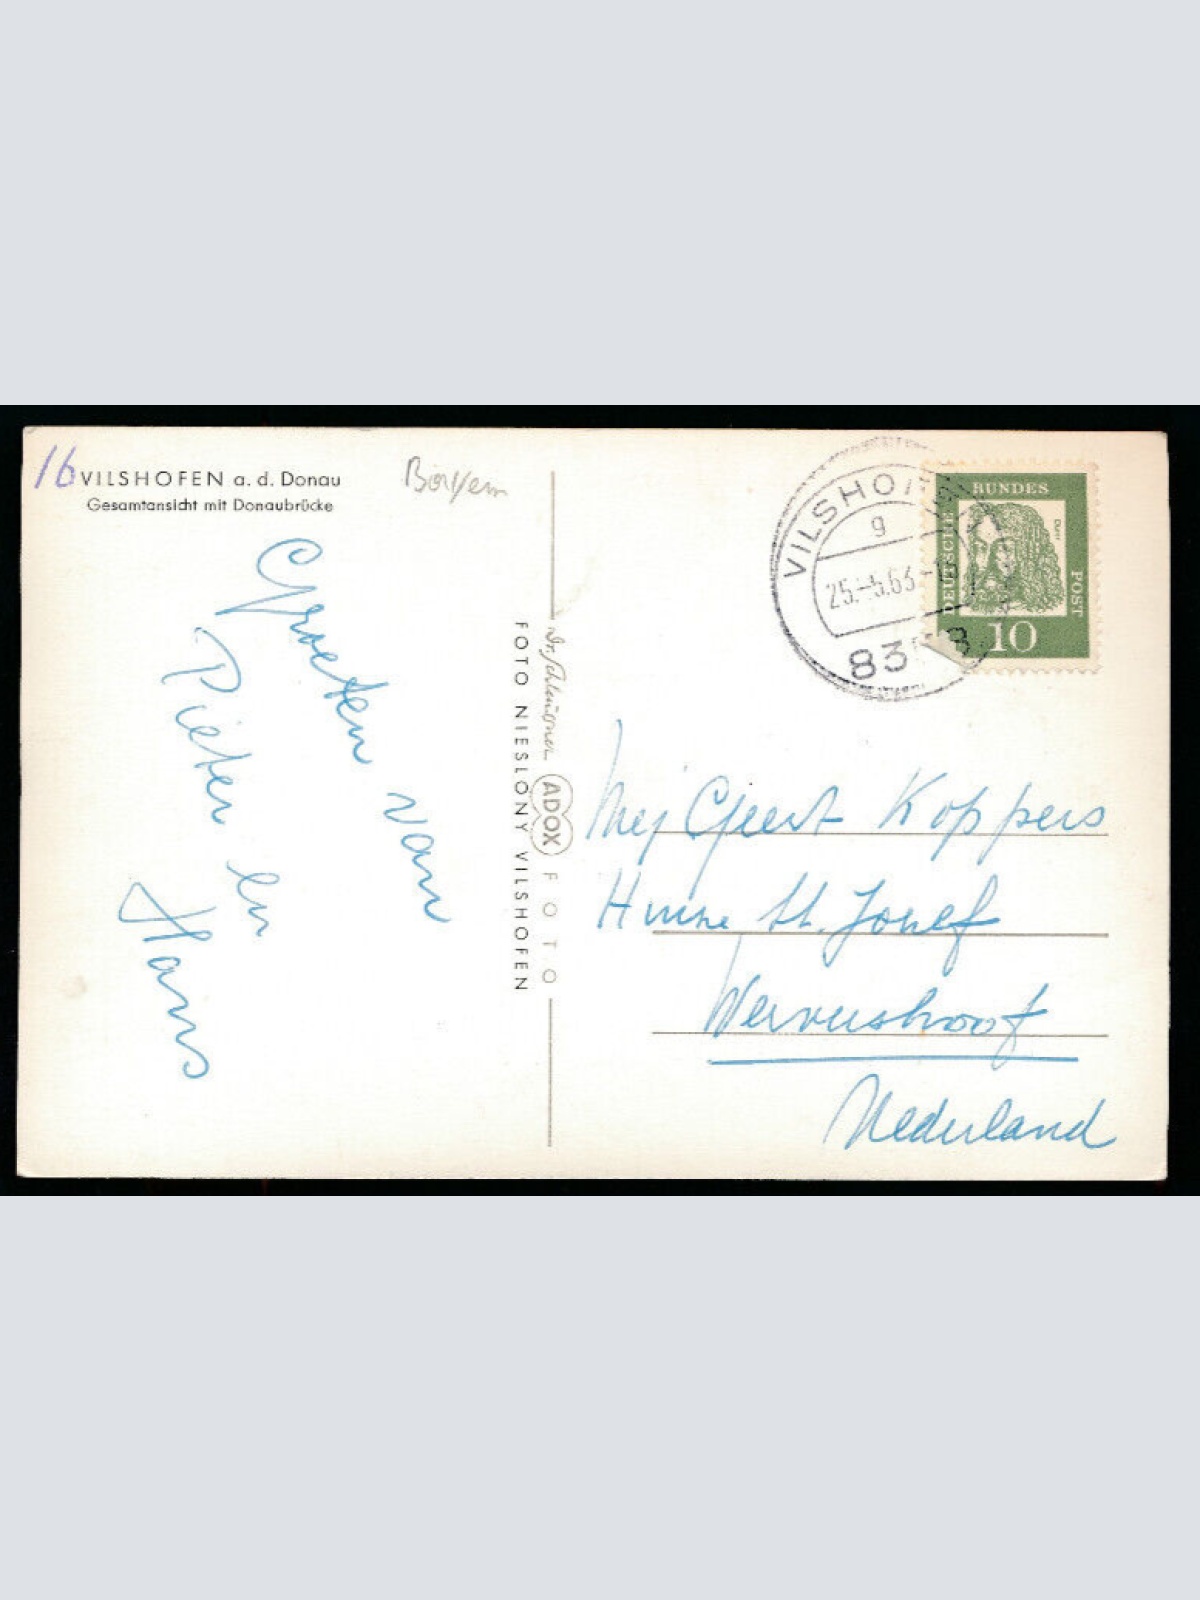 16
VILSHOFEN a. d. Donau
Gesamtansicht mit Donaubrücke
Groeten van
Pieter en
Hans
FOTO NIESLONY VILSHOFEN
ADOX FOTO
VILSHOFEN
g
25.-5.63
BUNDES
DEUTSCHE
POST
Dürer
10
Mej Geert Koppers
Huize St. Jozef
Wervershoof
Nederland